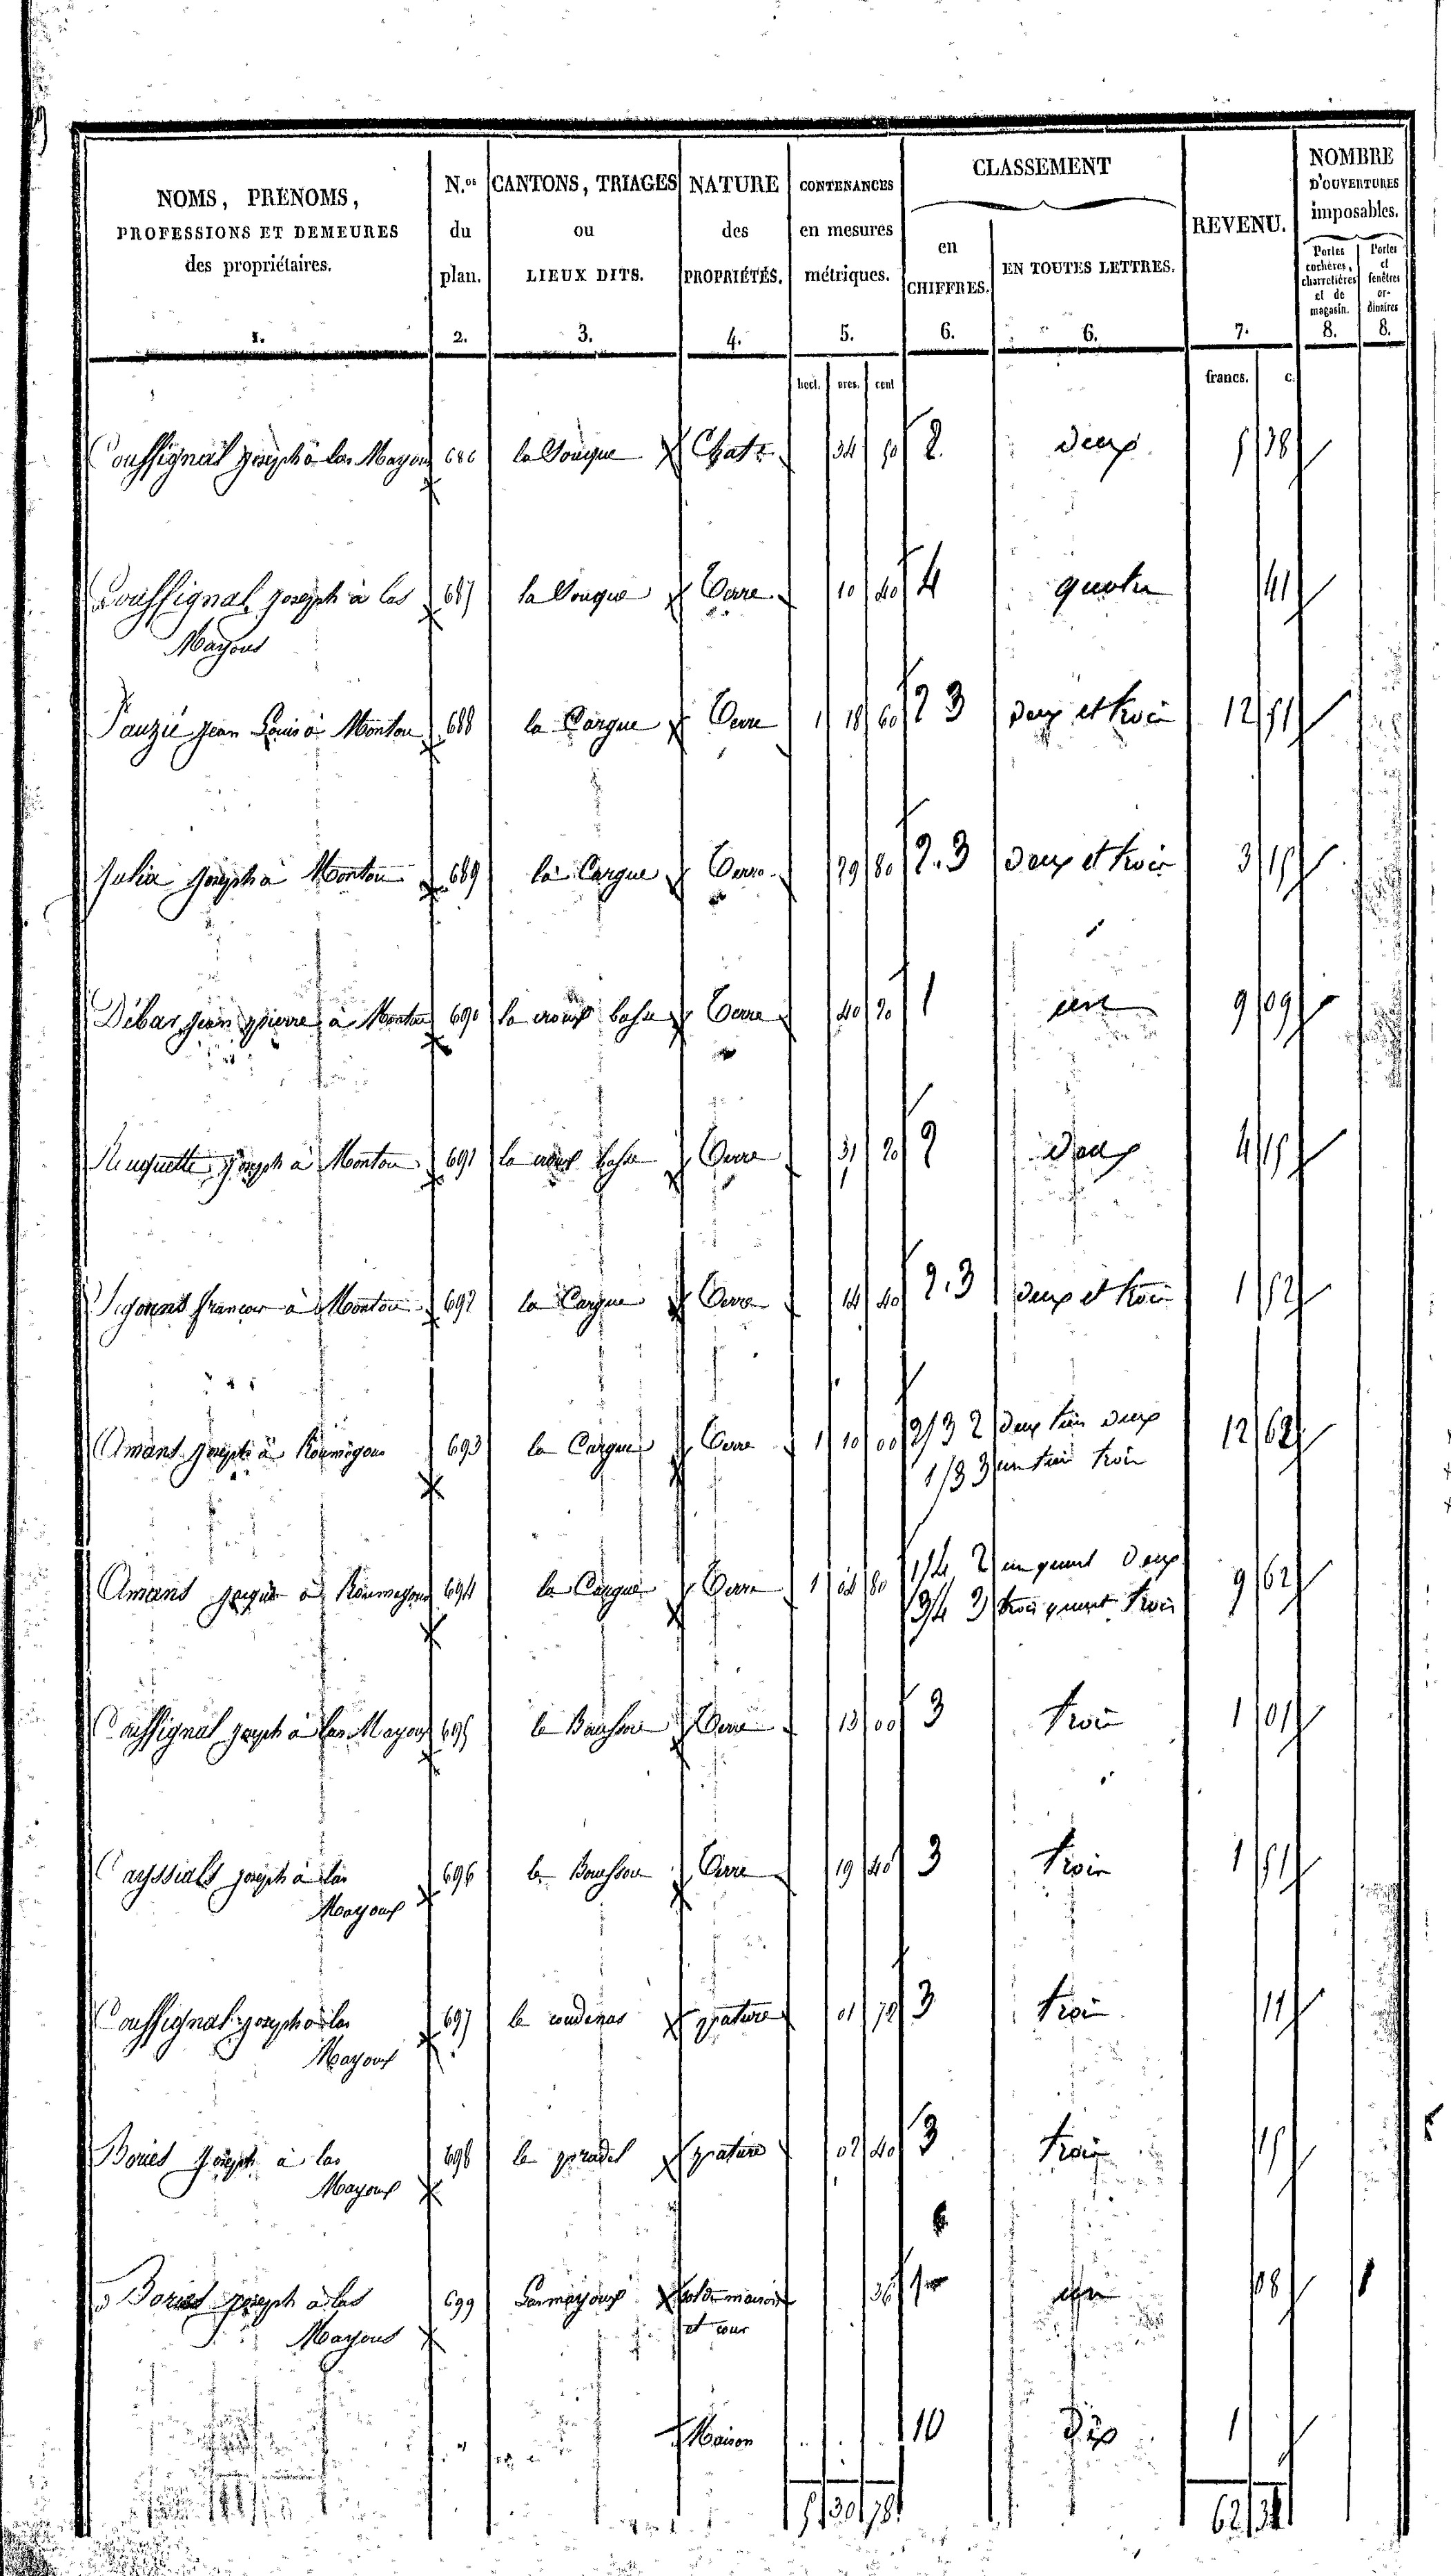 NOMS, PRENOMS,
PROFESSIONS ET DEMEURES
des propriétaires.
1.
N.os
du
plan.
2.
CANTONS, TRIAGES
ou
LIEUX DITS.
3.
NATURE
des
PROPRIÉTÉS.
4.
CONTENANCES
en mesures
métriques.
5.
CLASSEMENT
en
CHIFFRES.
6.
EN TOUTES LETTRES.
6.
REVENU.
7.
NOMBRE
D'OUVERTURES
imposables.
Portes
cochères,
charretières
et de
magasin.
8.
Portes
et
fenêtres
or-
dinaires
8.
hect. ares. cent francs. c.
Couffignal joseph à las Mayous 686 la 34 50 2 deux 5 38
Couffignal joseph à las 687 la Terre 10 40 4 quatre 41
Mayous
Pauzié jean Louis à Montou 688 la Cargue Terre 1 18 60 2 3 deux et trois 12 51
Julia joseph à Montou 689 la Cargue Terre 29 80 2.3 deux et trois 3 15
Débar jean pierre à Montou 690 la croux basse Terre 40 20 1 un 9 09
joseph à Montou 691 la croux basse Terre 31 20 2 deux 4 15
françois à Montou 692 la Cargue Terre 14 40 2.3 deux et trois 1 52
Amans joseph à Roumegous 693 la Cargue Terre 1 10 00 2/3 2 deux tiers deux 12 62
1/3 3 un tiers trois
Amans à Roumegous 694 la Cargue Terre 1 04 80 1/4 2 un quart deux 9 62
3/4 3 trois quart trois
Couffignal joseph à las Mayous 695 le Terre 13 00 3 trois 1 01
Cayssials joseph à las 696 le Terre 19 40 3 trois 1 51
Mayous
Couffignal joseph à las 697 le coudenas pature 01 72 3 trois 11
Mayous
Bories joseph à las 698 le pradel pature 02 40 3 trois 15
Mayous
Bories joseph à las 699 Lasmayous sol de maison 36 1 un 08 1
Mayous et cour
Maison 10 dix 1
5 30 78 62 31